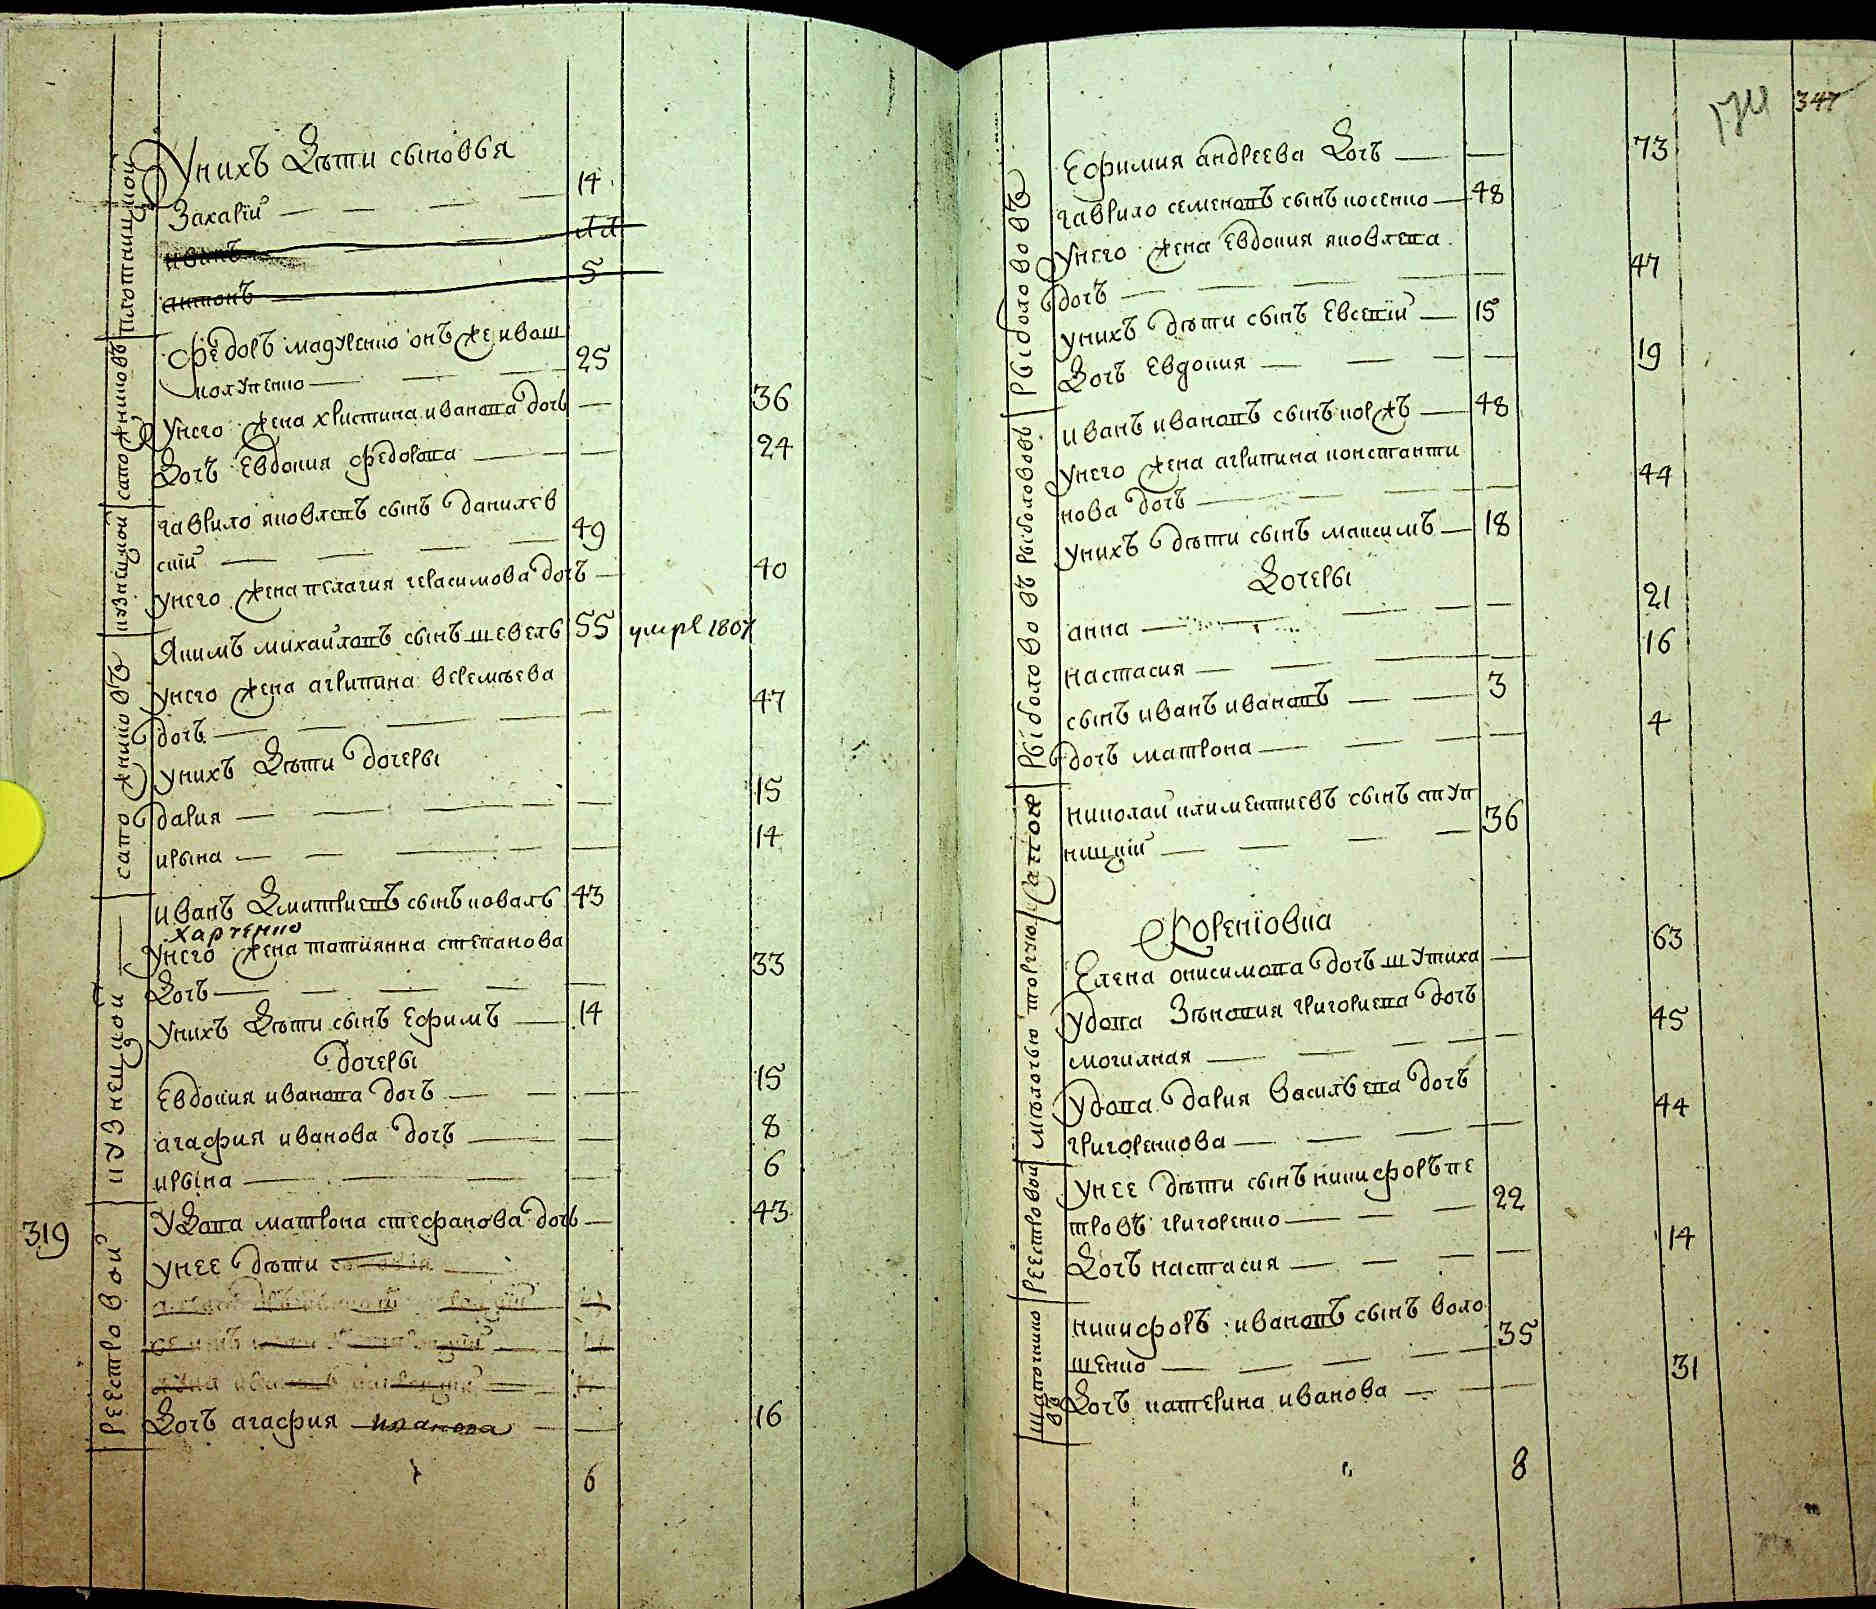 Унихъ Дѣти сыновья
Захарїй — 14
иванъ — 11
антонъ — 5
Федоръ мазуренко онъ же иваш
колупенко — 25
Унего жена христина иванова дочь — 36
Дочь Евдокия федорова — 24
гаврило яковлевъ сынъ данилев
скїй — 49
унего жена пелагия герасимова дочь — 40
Якимъ михайловъ сынъ шевель 55 умре 1807
унего жена агрипина веремѣева
дочь — 47
унихъ Дѣти дочеры
дария — 15
ирына — 14
иванъ Дмитриевъ сынъ коваль 43
харченко
Унего жена татиянна степанова
Дочь — 33
унихъ Дѣти сынъ Ефимъ — 14
дочеры
Евдокия иванова дочь — 15
агафия иванова дочь — 8
ирына — 6
319
Удова матрона стефанова дочь — 43
унее дѣти
Дочь агафия иванова — 16
6
плотницкой
сапожниковъ
кузнѣцкой
сапожниковъ
кузнецкой
реестровой
347
Ефимия андреева Дочь — 73
гаврило семеновъ сынъ косенко — 48
Унего жена Евдокия яковлева
дочь — 47
унихъ дѣти сынъ Евсевїй — 15
Дочь Евдокия — 19
иванъ ивановъ сынъ коржъ — 48
Унего жена агрипина константи
нова дочь — 44
унихъ дѣти сынъ максимъ — 18
Дочеры
анна — 21
настасия — 16
сынъ иванъ ивановъ — 3
дочь матрона — 4
николай климентиевъ сынъ ступ
ницкїй — 36
Коренїовка
Елена онисимова дочь шутиха — 63
удова Зѣновия григориева дочь
могилная — 45
удова дария Василъева дочь
григоренкова — 44
унее дѣти сынъ никифоръ пе
тровъ григоренко — 22
Дочь настасия — 14
никифоръ ивановъ сынъ воло
шенко — 35
Дочь катерина иванова — 31
8
рыболововъ
рыболововъ рыболововъ
мѣлочью торгую
реестровой
шапочнико
въ